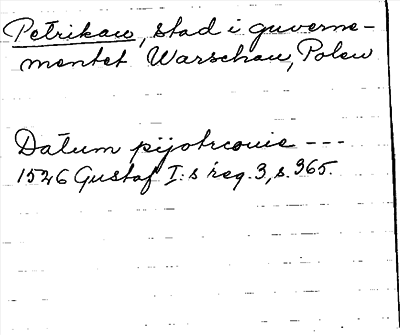 Petrikau, stad i guverne-
mentet Warschau, Polen
Datum pijotrcouie ---
1526 Gustaf I:s reg. 3, s. 365.